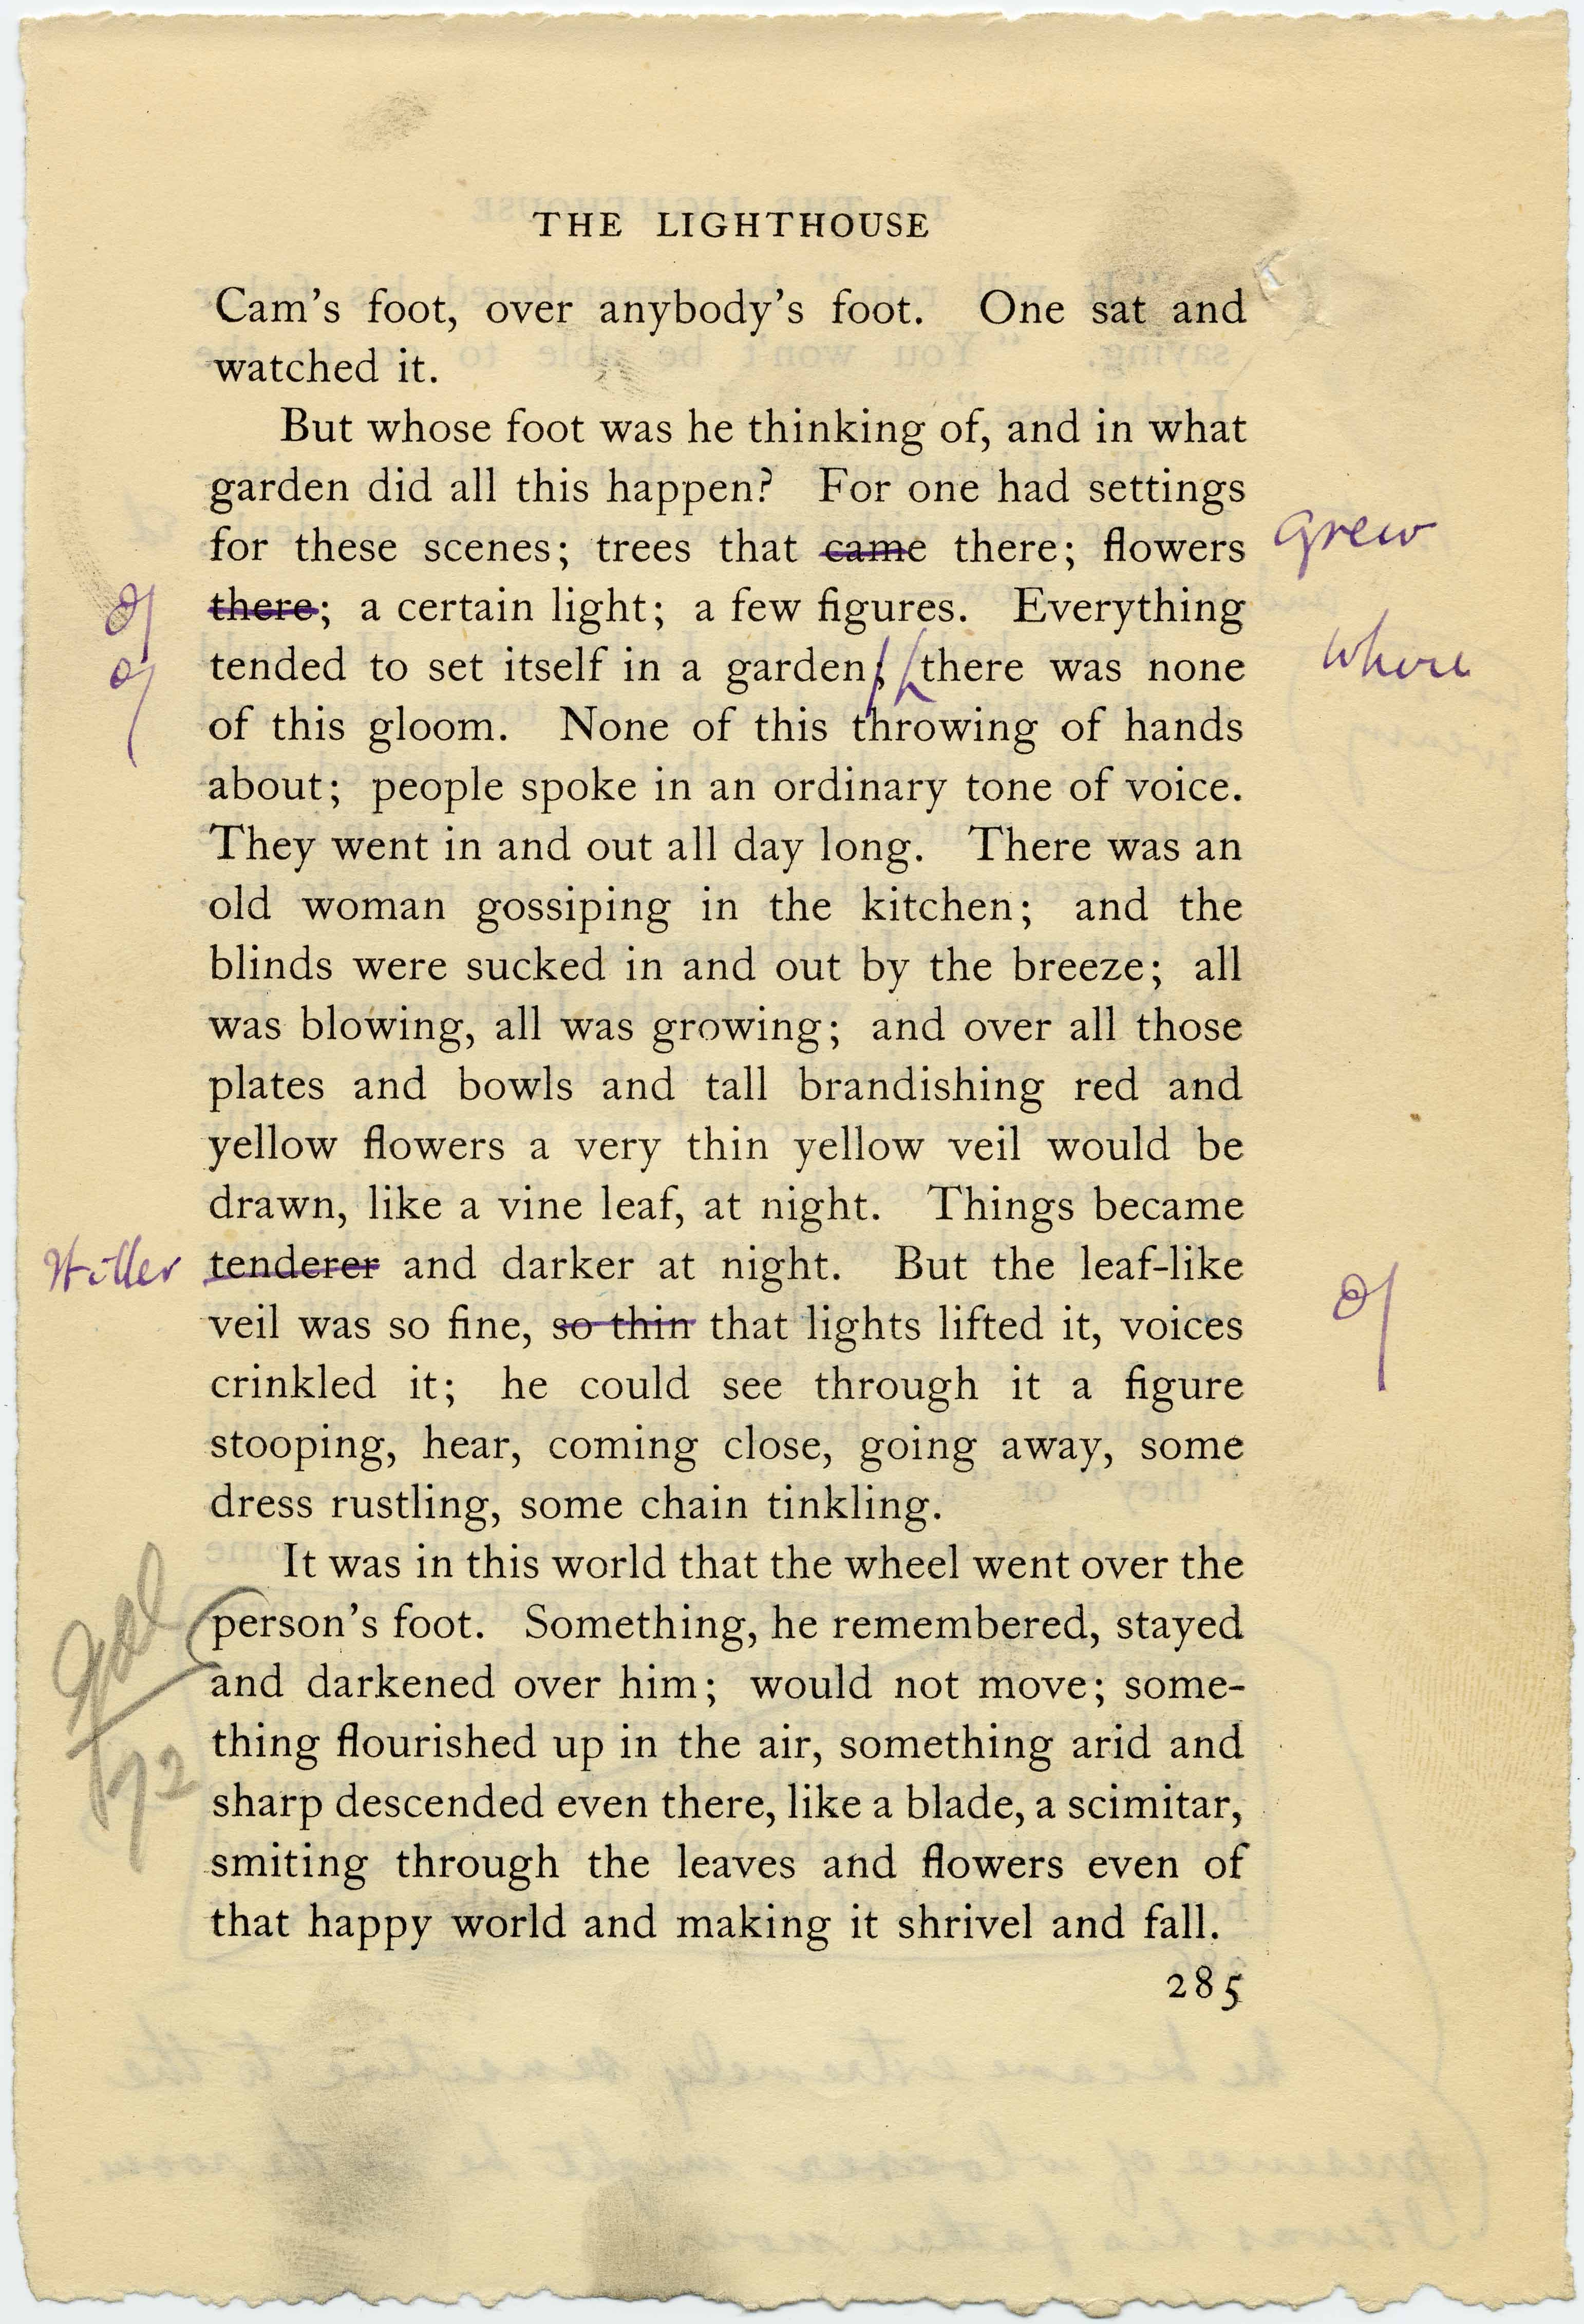 THE LIGHTHOUSE
Cam's foot, over anybody's foot. One sat and
watched it.
But whose foot was he thinking of, and in what
garden did all this happen? For one had settings
for these scenes; trees that came there; flowers grew
there; a certain light; a few figures. Everything
tended to set itself in a garden; there was none where
of this gloom. None of this throwing of hands
about; people spoke in an ordinary tone of voice.
They went in and out all day long. There was an
old woman gossiping in the kitchen; and the
blinds were sucked in and out by the breeze; all
was blowing, all was growing; and over all those
plates and bowls and tall brandishing red and
yellow flowers a very thin yellow veil would be
drawn, like a vine leaf, at night. Things became
stiller tenderer and darker at night. But the leaf-like
veil was so fine, so thin that lights lifted it, voices
crinkled it; he could see through it a figure
stooping, hear, coming close, going away, some
dress rustling, some chain tinkling.
It was in this world that the wheel went over the
person's foot. Something, he remembered, stayed
and darkened over him; would not move; some-
thing flourished up in the air, something arid and
sharp descended even there, like a blade, a scimitar,
smiting through the leaves and flowers even of
that happy world and making it shrivel and fall.
285